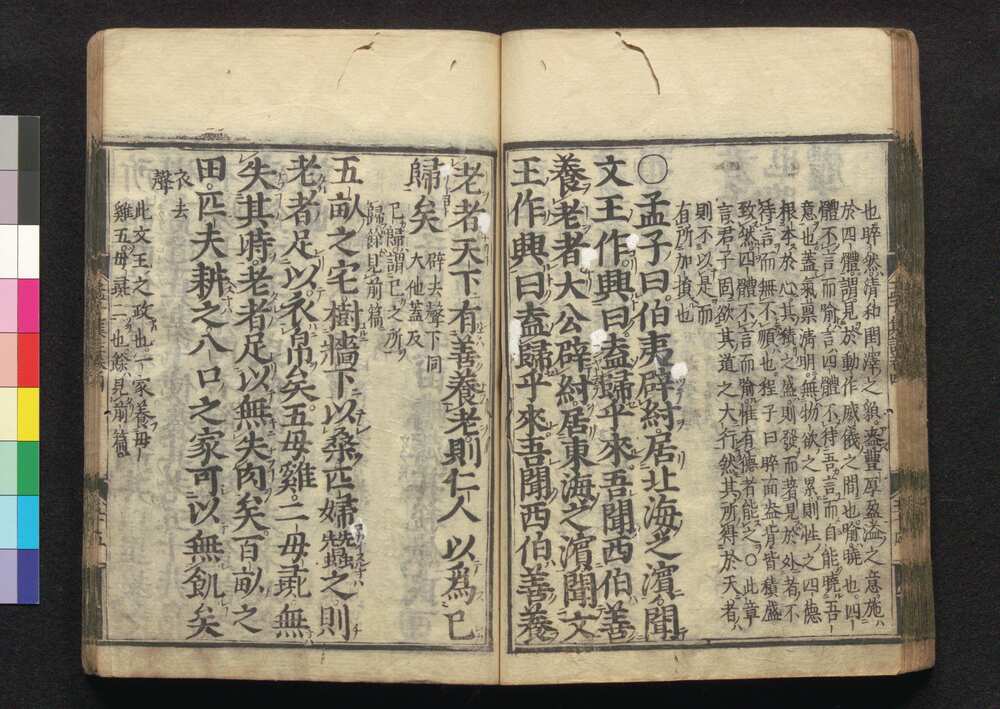 也睟然清和閏澤之貌盎豐厚盈溢之意施
於四體謂見於動作威儀之間也喻曉也四
體不言而喻言四體不待吾言而自能曉吾
意也蓋氣稟清明無物欲之累則性之四德
根本於心其積之盛則發而著見於外者不
待言而無不順也程子曰睟面盎背皆積盛
致然四體不言而喻惟有德者能之○此章
言君子固欲其道之大行然其所得於天者
則不以是而
有所加損也
○孟子曰伯夷辟紂居北海之濱聞
文王作興曰盍歸乎來吾聞西伯善
養老者大公辟紂居東海之濱聞文
王作興曰盍歸乎來吾聞西伯善養
老者天下有善養老則仁人以為己
歸矣 辟去聲下同
大他蓋反
己歸謂己之所
歸餘見前篇
五畝之宅樹牆下以桑匹婦蠶之則
老者足以衣帛矣五母雞二母彘無
失其時老者足以無失肉矣百畝之
田匹夫耕之八口之家可以無飢矣
衣去
聲
此文王之政也一家養母
雞五母彘二也餘見前篇